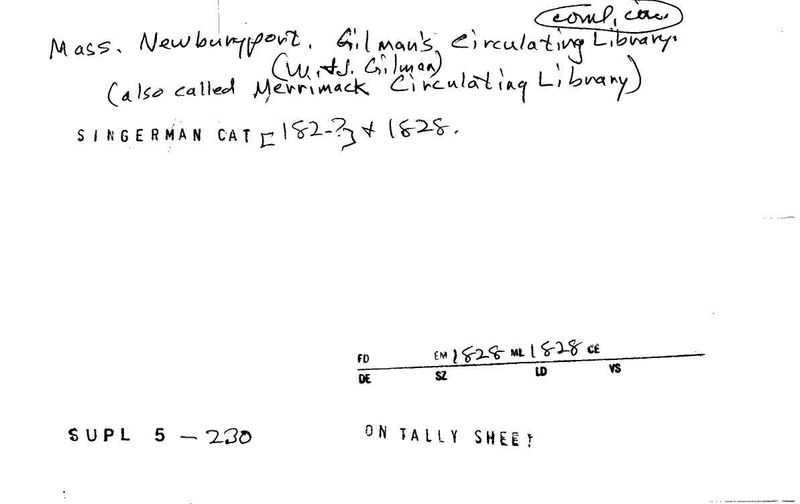 coml, circ
Mass. Newburyport. Gilman's Circulating Library.
(W. & J. Gilman)
(also called Merrimack Circulating Library)
SINGERMAN CAT [182-?] + 1828.
FD EM 1828 ML 1828 CE
DE SZ LD VS
SUPL 5 - 230 ON TALLY SHEET